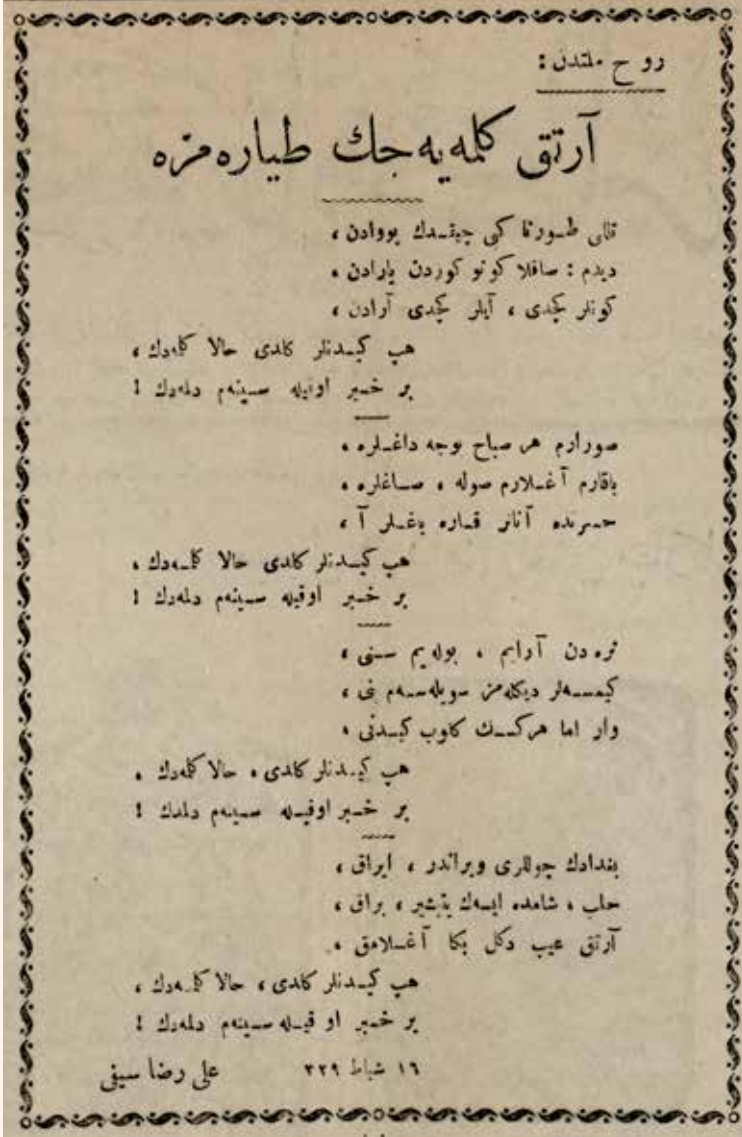 روح ملتدن :
آرتق كلمه‌يه‌جك طياره‌مزه
قللى طورنا كبى چيقدك يووادن ،
ديدم : ساقلا كوتو كوزدن يارادن ،
كونلر كچدى ، آيلر كچدى آرادن ،
هپ كيدنلر كلدى حالا كلمه‌دك ،
بر خبر اوقيله سينه‌م دلمه‌دك !
صورارم هر صباح يوجه داغلره ،
باقارم آغلارم صوله ، صاغلره ،
حسرنده آنالر قاره باغلر آ ،
هپ كيدنلر كلدى حالا كلمه‌دك ،
بر خبر اوقيله سينه‌م دلمه‌دك !
نره‌دن آرايم ، بوله‌يم سنى ،
كيمسه‌لر ديكله‌مز سويله‌سه‌م بنى ،
وار اما هركسك كلوب كيدنى ،
هپ كيدنلر كلدى ، حالا كلمه‌دك ،
بر خبر اوقيله سينه‌م دلمدك !
بغدادك چوللرى ويراندر ، ايراق ،
حلب ، شامده ايسه‌ك يتيشير ، براق ،
آرتق عيب دكل بكا آغلامق ،
هپ كيدنلر كلدى ، حالا كلمه‌دك ،
بر خبر اوقيله سينه‌م دلمه‌دك !
١٦ شباط ٣٢٩
على رضا سيفى